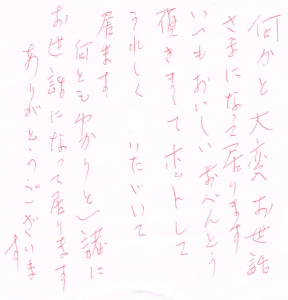 何かと大変お世話
さまになって居ります
いつもおいしいおべんとう
頂きましてホットして
うれしく いただいて
居ます
何とも 諸に
お世話になって居ります
ありがとうございま
す